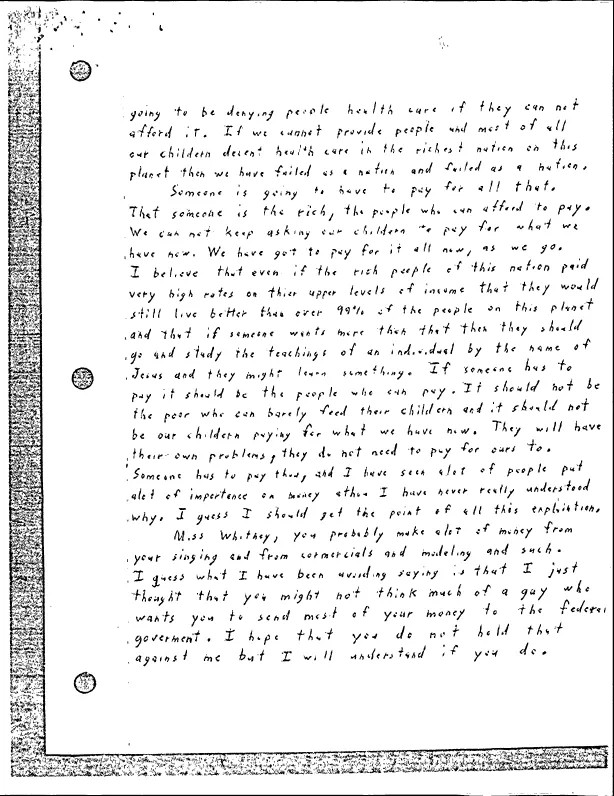 going to be denying people health care if they can not
afford it. If we cannot provide people and most of all
our childern decent health care in the richest nation on this
planet then we have failed as a nation and failed as a nation.
Someone is going to have to pay for all that.
That someone is the rich, the people who can afford to pay.
We can not keep asking our childern to pay for what we
have now. We have got to pay for it all now, as we go.
I believe that even if the rich people of this nation paid
very high rates on thier upper levels of income that they would
still live better than over 99% of the people on this planet
and that if someone wants more than that then they should
go and study the teachings of an individual by the name of
Jesus and they might learn something. If someone has to
pay it should be the people who can pay. It should not be
the poor who can barely feed their childern and it should not
be our childern paying for what we have now. They will have
their own problems, they do not need to pay for ours to.
Someone has to pay thou, and I have seen alot of people put
alot of importence on money athou I have never really understood
why. I guess I should get the point of all this explaition.
Miss Whitney, you probably make alot of money from
your singing and from commercials and modeling and such.
I guess what I have been avoiding saying is that I just
thought that you might not think much of a guy who
wants you to send most of your money to the federal
goverment. I hope that you do not hold that
against me but I will understand if you do.